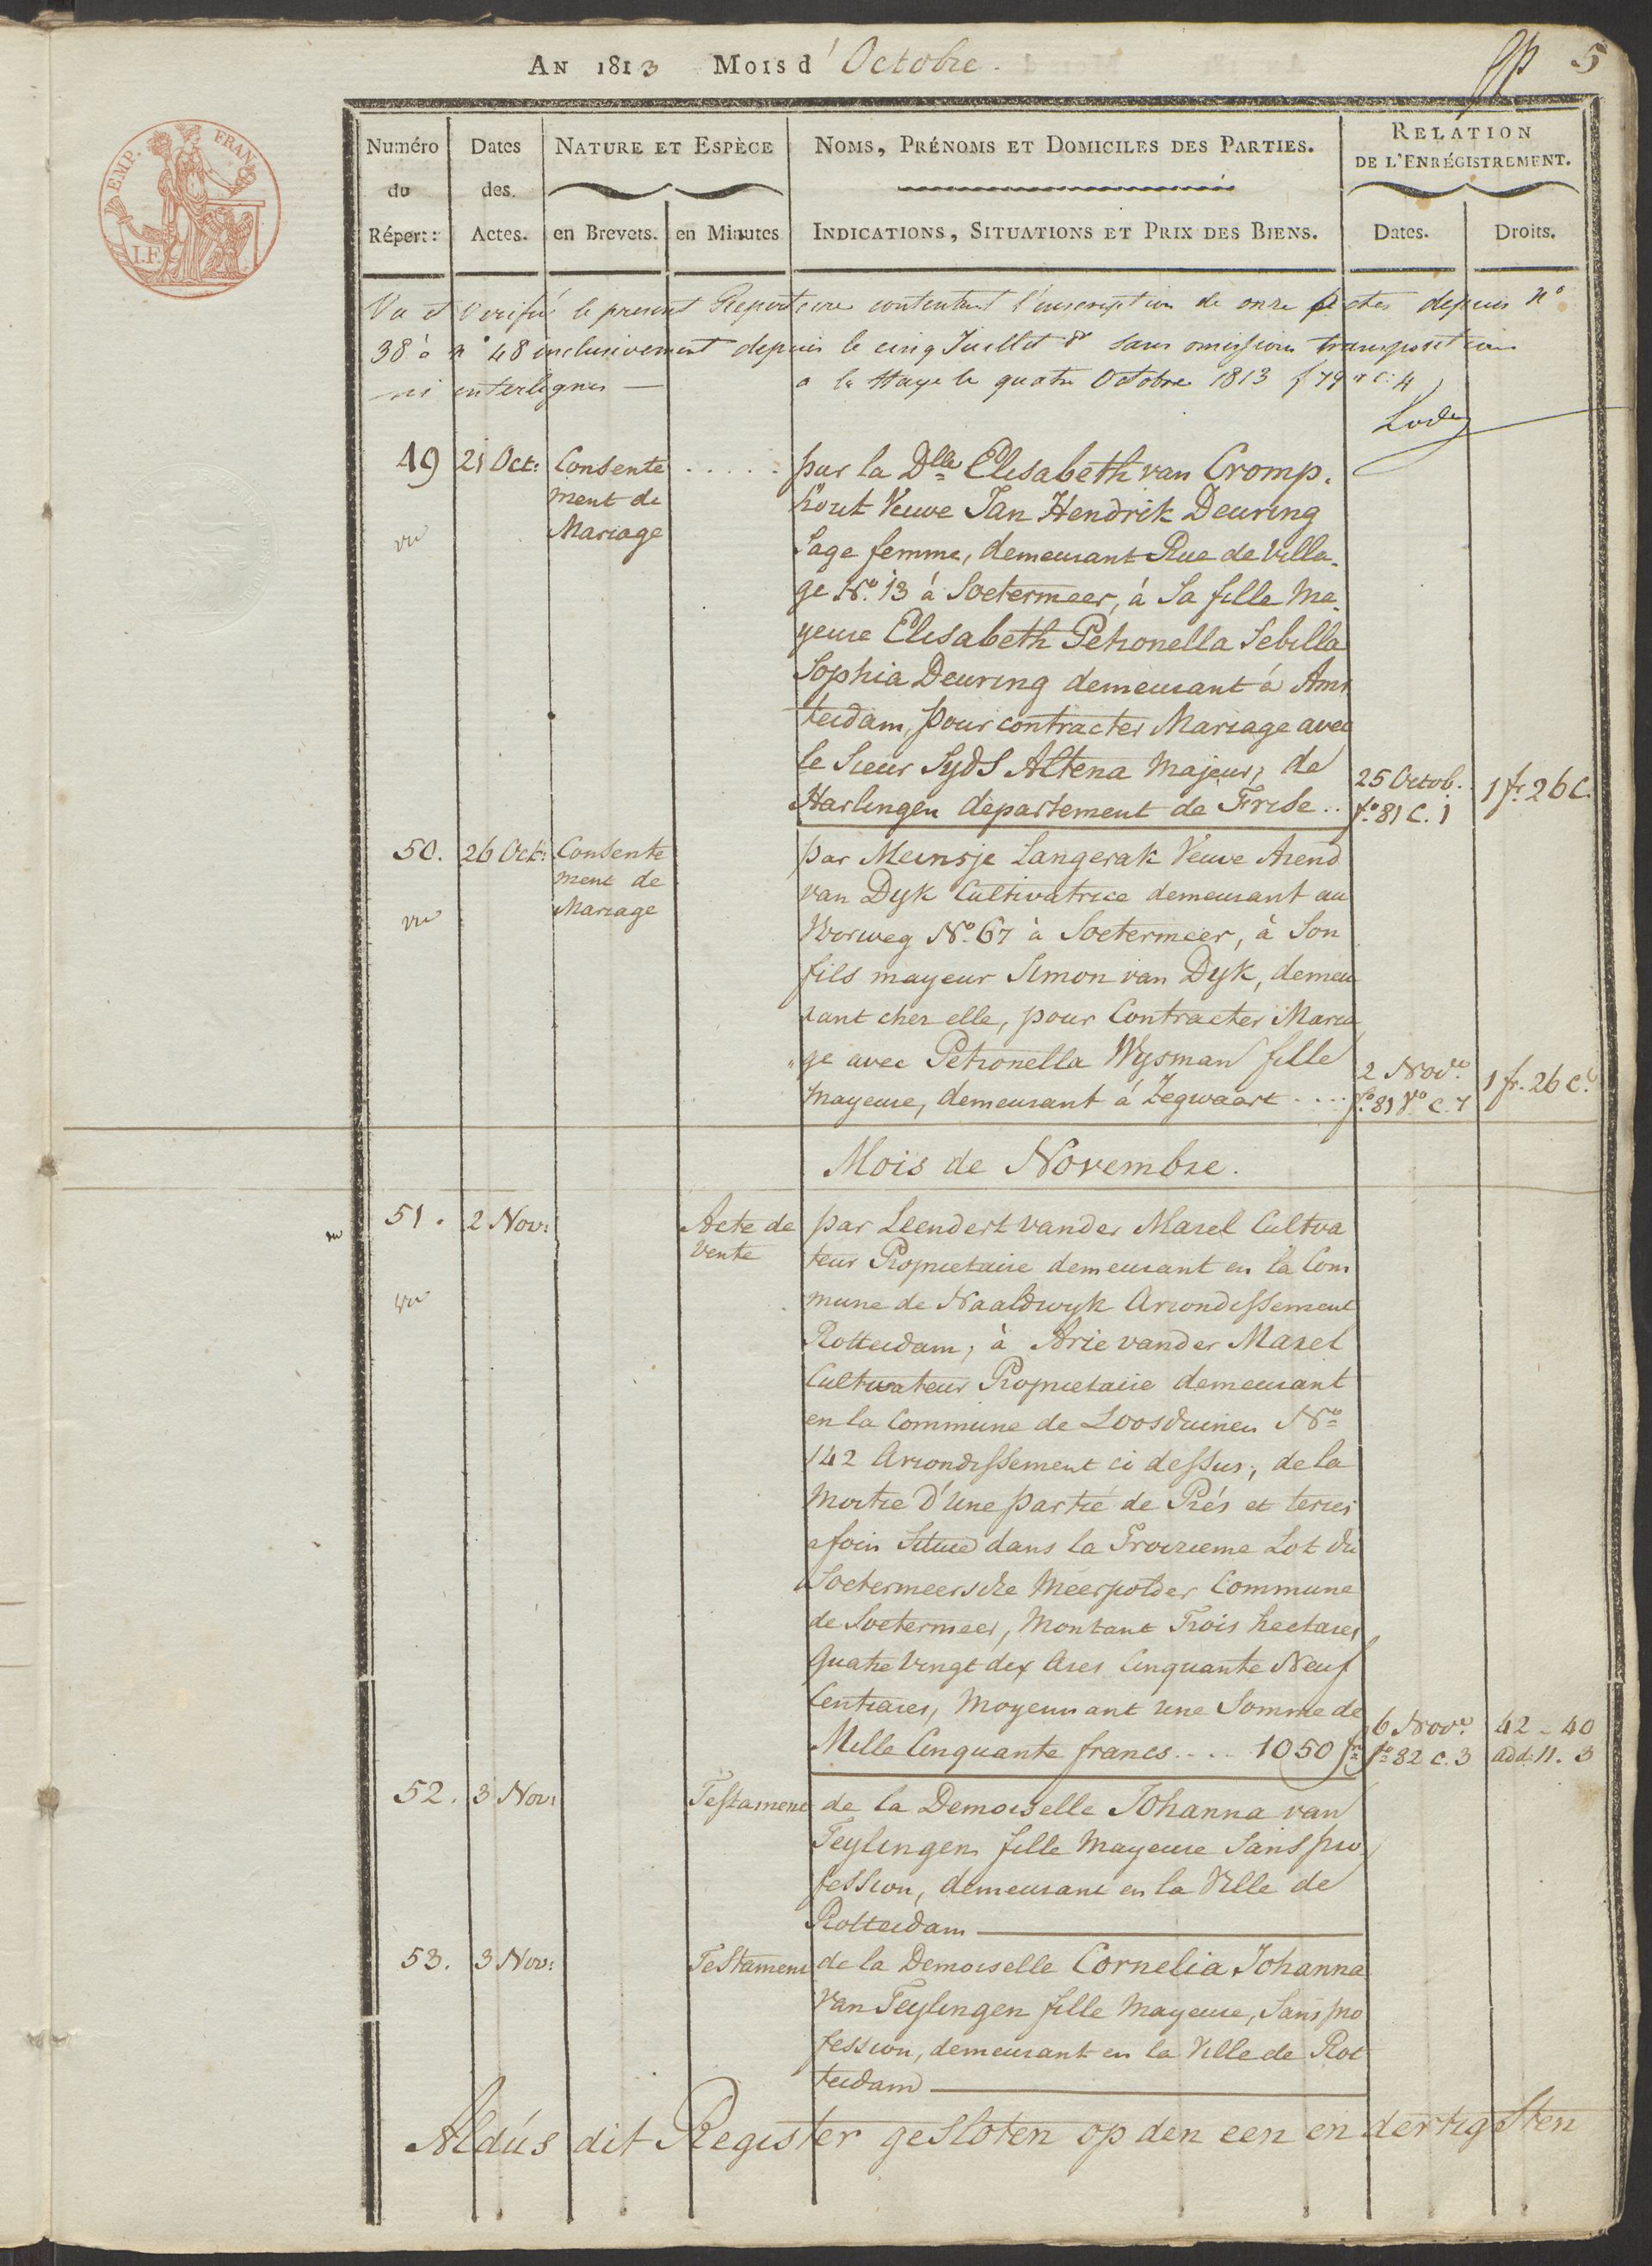 An 1813 Mois d'Octobre. 5
EMP. FRANÇ
I.F.
Numéro du Répert: Dates des Actes. Nature et Espèce en Brevets. en Minutes Noms, Prénoms et Domiciles des Parties. Indications, Situations et Prix des Biens. Relation de l'Enrégistrement. Dates. Droits.
Vu et Verifié le present Repertoire contentant l'inscription de onze Actes depuis no
38 à no 48 inclusivement depuis le cinq Juillet dr sans omission transposition
ni interlignes — a la Haye le quatre Octobre 1813 f 79 r c: 4
49 21 Oct: Consente ..... par la Dlle Elisabeth van Cromp.
ment de hout Veuve Jan Hendrik Deuring
vu Mariage Sage femme, demeurant Rue de Villa.
ge No. 13 à Soetermeer, à Sa fille Ma.
yeure Elisabeth Petronella Sebilla
Sophia Deuring demeurant à Ams
terdam, pour contracter Mariage avec
le Sieur Syds Altena Majeur, de 25 Octob. 1 fr. 26 C.
Harlingen departement de Frise .. fo. 81 C. 1
50. 26 Oct: Consente par Meinsje Langerak Veuve Arend
ment de van Dyk Cultivatrice demeurant au
vu Mariage Voorweg No. 67 à Soetermeer, à Son
fils mayeur Simon van Dyk, demeu
rant chez elle, pour Contracter Maria
"ge avec Petronella Wysman fille 2 Nove. 1 fr. 26 C.
mayeure, demeurant à Zegwaart .... fo 81 Vo C. 7
Mois de Novembre.
51. 2 Nov: Acte de par Leendert vander Marel Cultva
Vente teur Proprietaire demeurant en la Com
vu mune de Naaldwyk Arrondissement
Rotterdam, à Arie vander Marel
Cultivateur Proprietaire demeurant
en la Commune de Loosduinen No
142 Arrondissement ci dessus, de la
Moitie d'Une partie de Prés et terres
a foin Situé dans la Troizieme Lot du
Soetermeersche Meerpolder Commune
de Soetermeer, Montant Trois hectares
Quatre Vingt dix Ares Cinquante Neuf
Centiares, Moyennant Une Somme de 6 Nove. 42 - 40
Mille Cinquante francs .... 1050 frs fo 82 C. 3 add: 11. 3
52. 3 Nov: Testament de la Demoiselle Johanna van
Teylingen fille Mayeure Sans pro
fession, demeurant en la Ville de
Rotterdam
53. 3 Nov: Testament de la Demoiselle Cornelia Johanna
van Teylingen fille Mayeure, Sans pro
fession, demeurant en la Ville de Rot
terdam
Aldús dit Register gesloten op den een en dertigsten